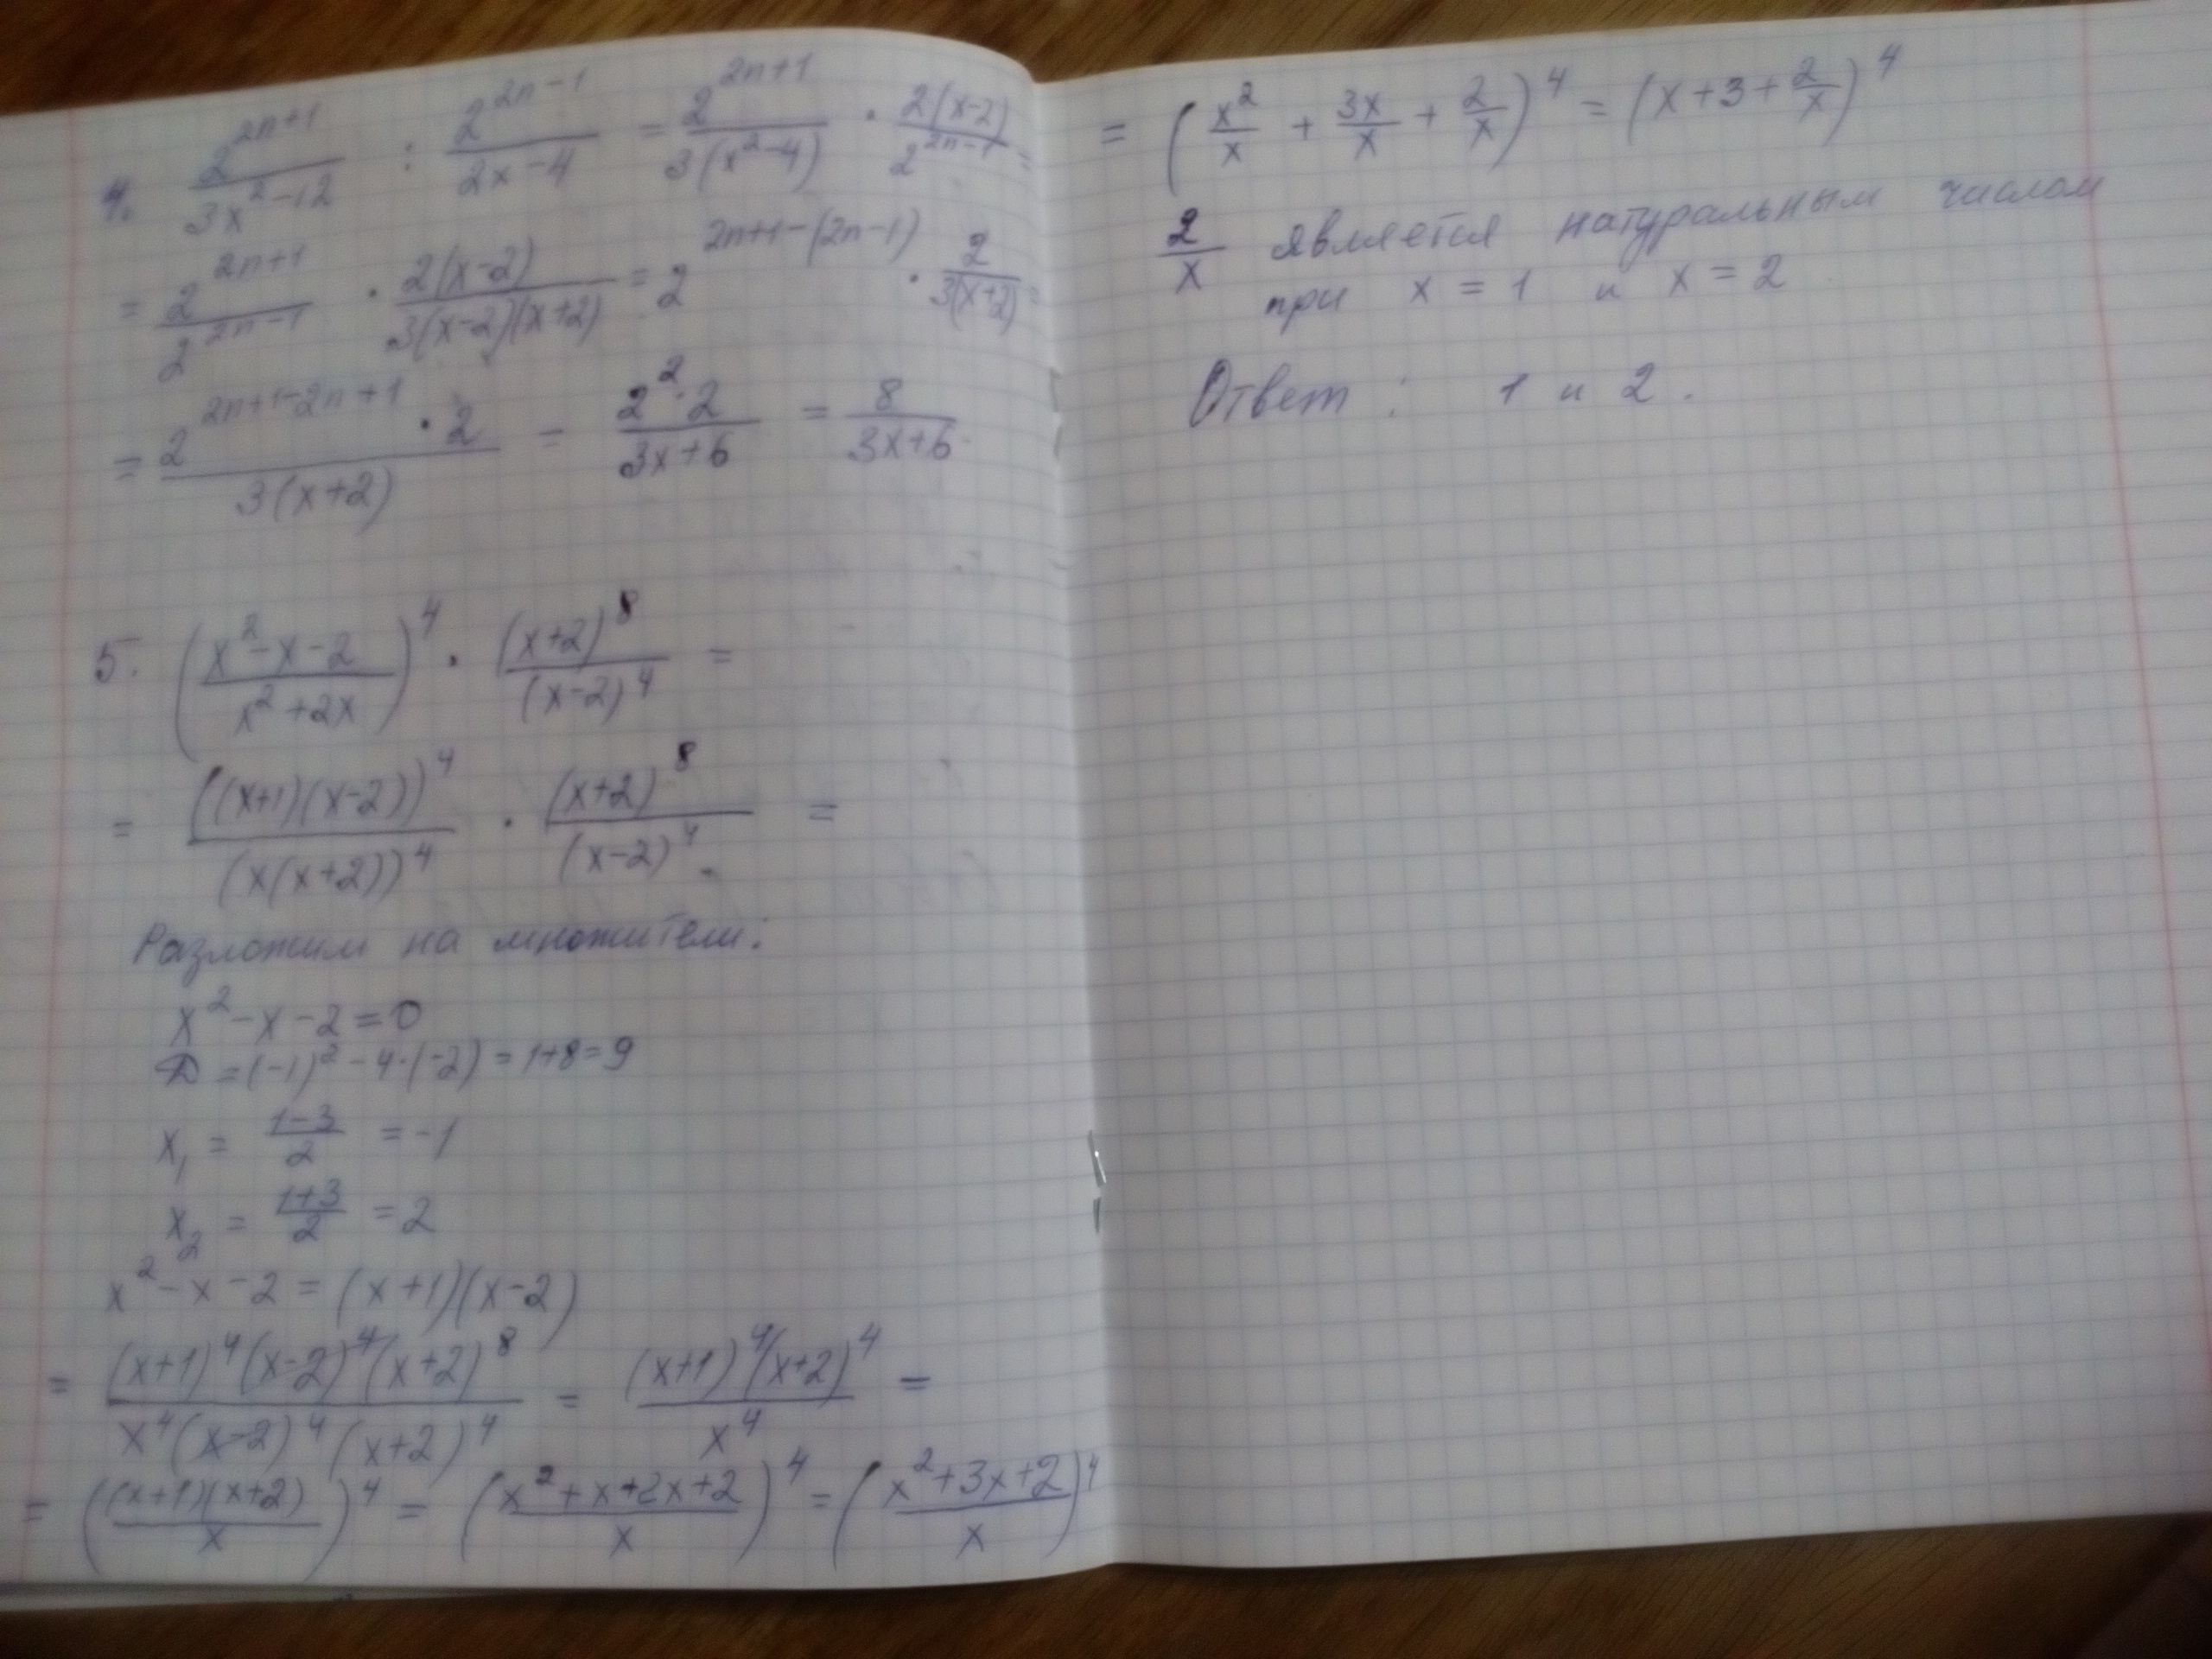 4. \frac{2^{2n+1}}{3x^2-12} : \frac{2^{2n-1}}{2x-4} = \frac{2^{2n+1}}{3(x^2-4)} \cdot \frac{2(x-2)}{2^{2n-1}} =
= \frac{2^{2n+1}}{2^{2n-1}} \cdot \frac{2(x-2)}{3(x-2)(x+2)} = 2^{2n+1-(2n-1)} \cdot \frac{2}{3(x+2)} =
= \frac{2^{2n+1-2n+1} \cdot 2}{3(x+2)} = \frac{2^2 \cdot 2}{3x+6} = \frac{8}{3x+6}.
5. (\frac{x^2-x-2}{x^2+2x})^4 \cdot \frac{(x+2)^8}{(x-2)^4} =
= \frac{((x+1)(x-2))^4}{(x(x+2))^4} \cdot \frac{(x+2)^8}{(x-2)^4} =
Разложим на множители:
x^2-x-2=0
D = (-1)^2 - 4·(-2) = 1+8=9
x_1 = \frac{1-3}{2} = -1
x_2 = \frac{1+3}{2} = 2
x^2-x-2 = (x+1)(x-2)
= \frac{(x+1)^4(x-2)^4(x+2)^8}{x^4(x-2)^4(x+2)^4} = \frac{(x+1)^4(x+2)^4}{x^4} =
= (\frac{(x+1)(x+2)}{x})^4 = (\frac{x^2+x+2x+2}{x})^4 = (\frac{x^2+3x+2}{x})^4
= (\frac{x^2}{x} + \frac{3x}{x} + \frac{2}{x})^4 = (x+3+\frac{2}{x})^4
\frac{2}{x} является натуральным числом
при x = 1 и x = 2
Ответ: 1 и 2.